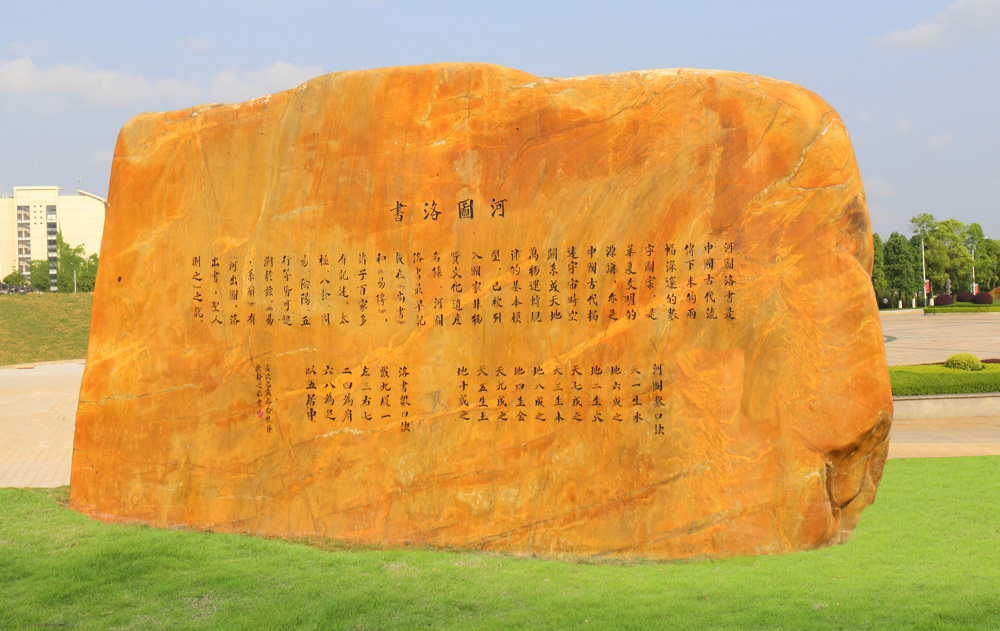 河圖洛書
河圖洛書是
中國古代流
傳下來的兩
幅深邃的數
字圖案，是
華夏文明的
源頭，亦是
中國古代描
述宇宙時空
關系或天地
萬物運轉規
律的基本模
型，已被列
入國家非物
質文化遺產
名錄。河圖
洛書最早記
載在《尚書》
和《易傳》，
諸子百家多
有記述。太
極、八卦、周
易、陰陽、五
行等皆可追
溯於兹。《易
·系辭》有
“河出圖，洛
出書，聖人
則之”之說。
河圖數口訣
天一生水
地六成之
地二生火
天七成之
天三生木
地八成之
地四生金
天九成之
天五生土
地十成之
洛書數口訣
戴九履一
左三右七
二四為肩
六八為足
以五居中